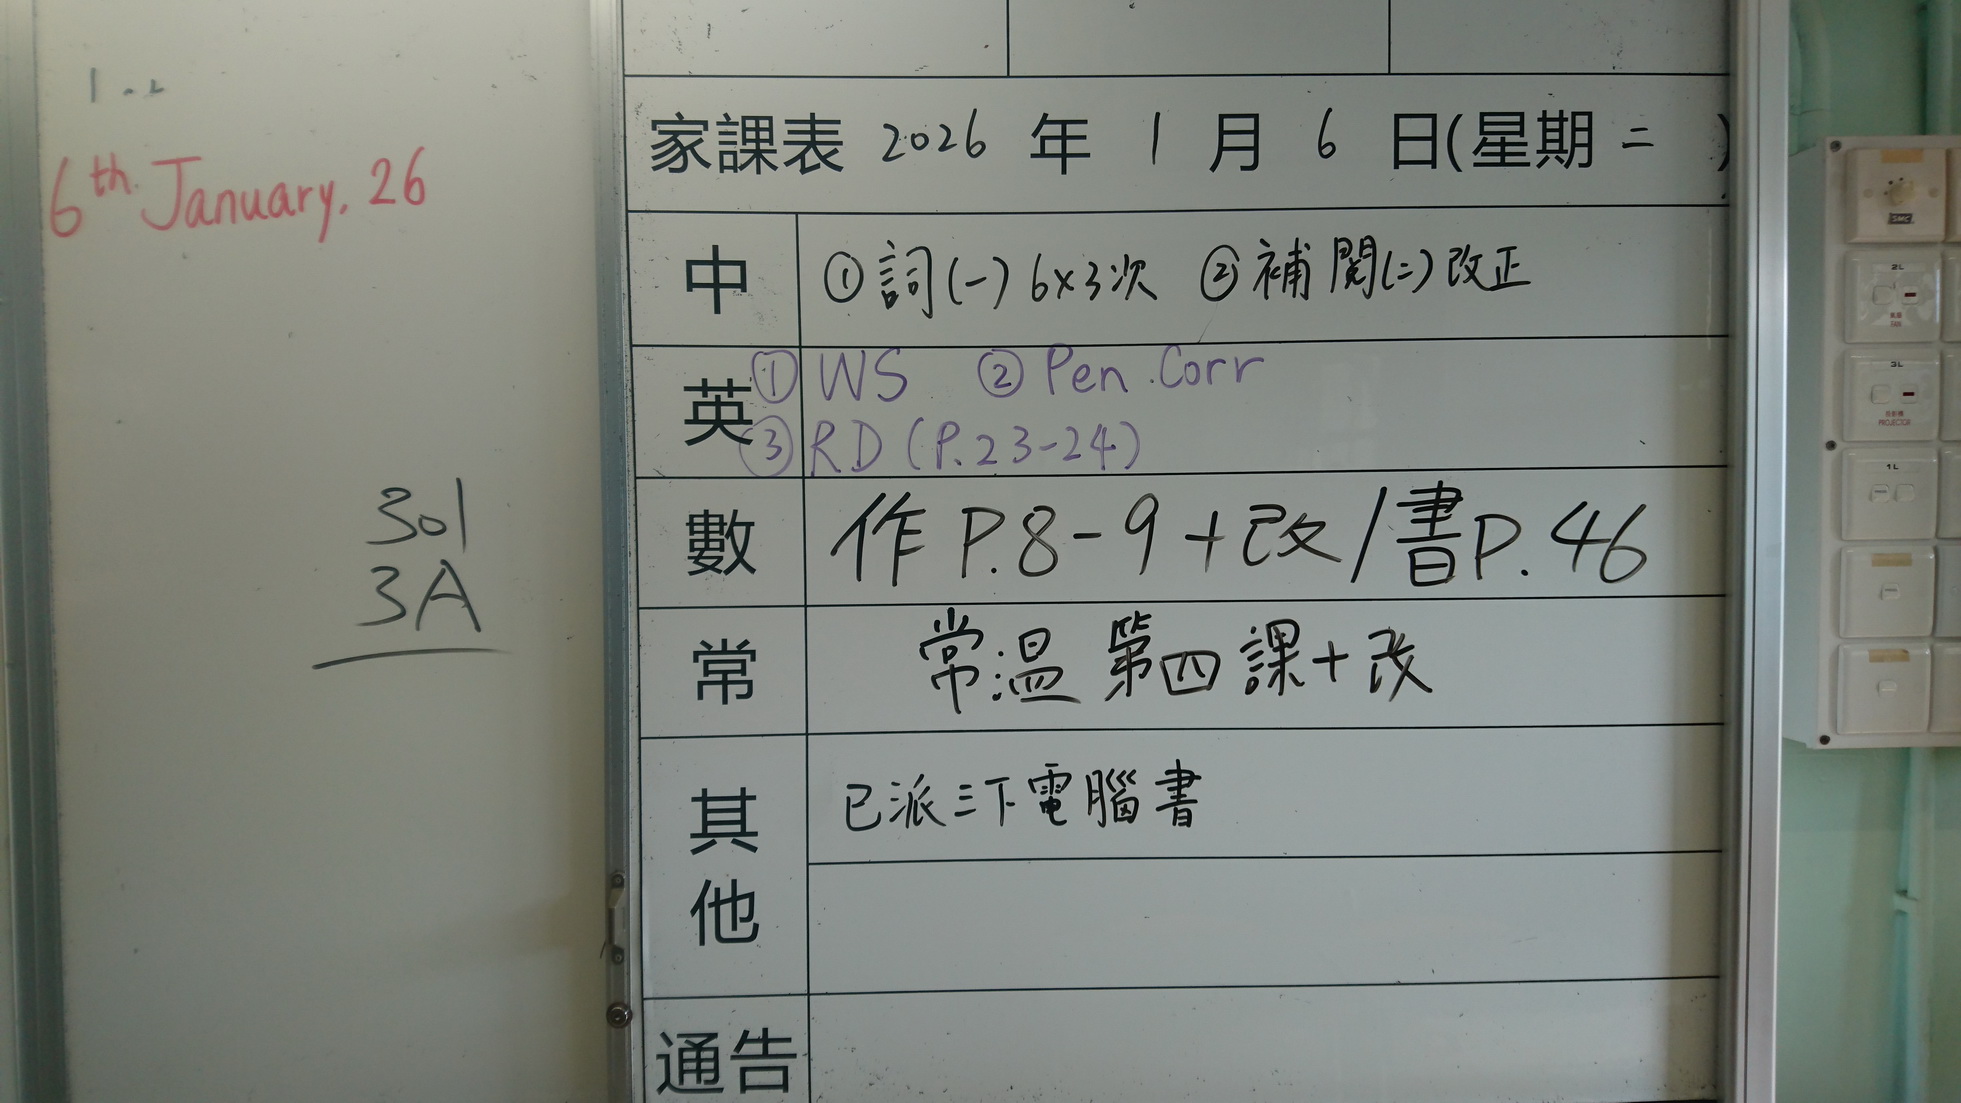 6th January, 26
301
3A
家課表 2026 年 1 月 6 日(星期二)
中 ①詞(一)6×3次 ②補閱(二)改正
英 ①WS ②Pen Corr
③RD (P.23-24)
數 作P.8-9+改/書P.46
常 常溫 第四課+改
其他 已派三下電腦書
通告
2L
FAN
3L
PROJECTOR
1L